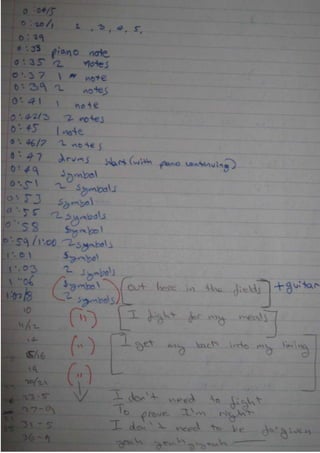 0:04/5
0:20/1 2, 3, 4, 5,
0:29
0:33 piano note
0:35 2 notes
0:37 1 note
0:39 2 notes
0:41 1 note
0:42/3 2 notes
0:45 1 note
0:46/7 2 notes
0:47 drums start (with piano continuing)
0:49 symbol
0:51 2 symbols
0:53 symbol
0:55 2 symbols
0:58 symbol
0:59/1:00 2 symbols
1:01 symbol
1:03 2 symbols
1:06 (symbol [out here in the fields] + guitar
1:07/8 2 symbols)
10 (") [I fight for my meals]
11/12
14 (") [I get my back into my living]
15/16
19 (")
20/21
23-5 I don't need to fight
27-9 To prove I'm right
31-5 I don't need to be forgiven
36-9 yeah yeah yeah